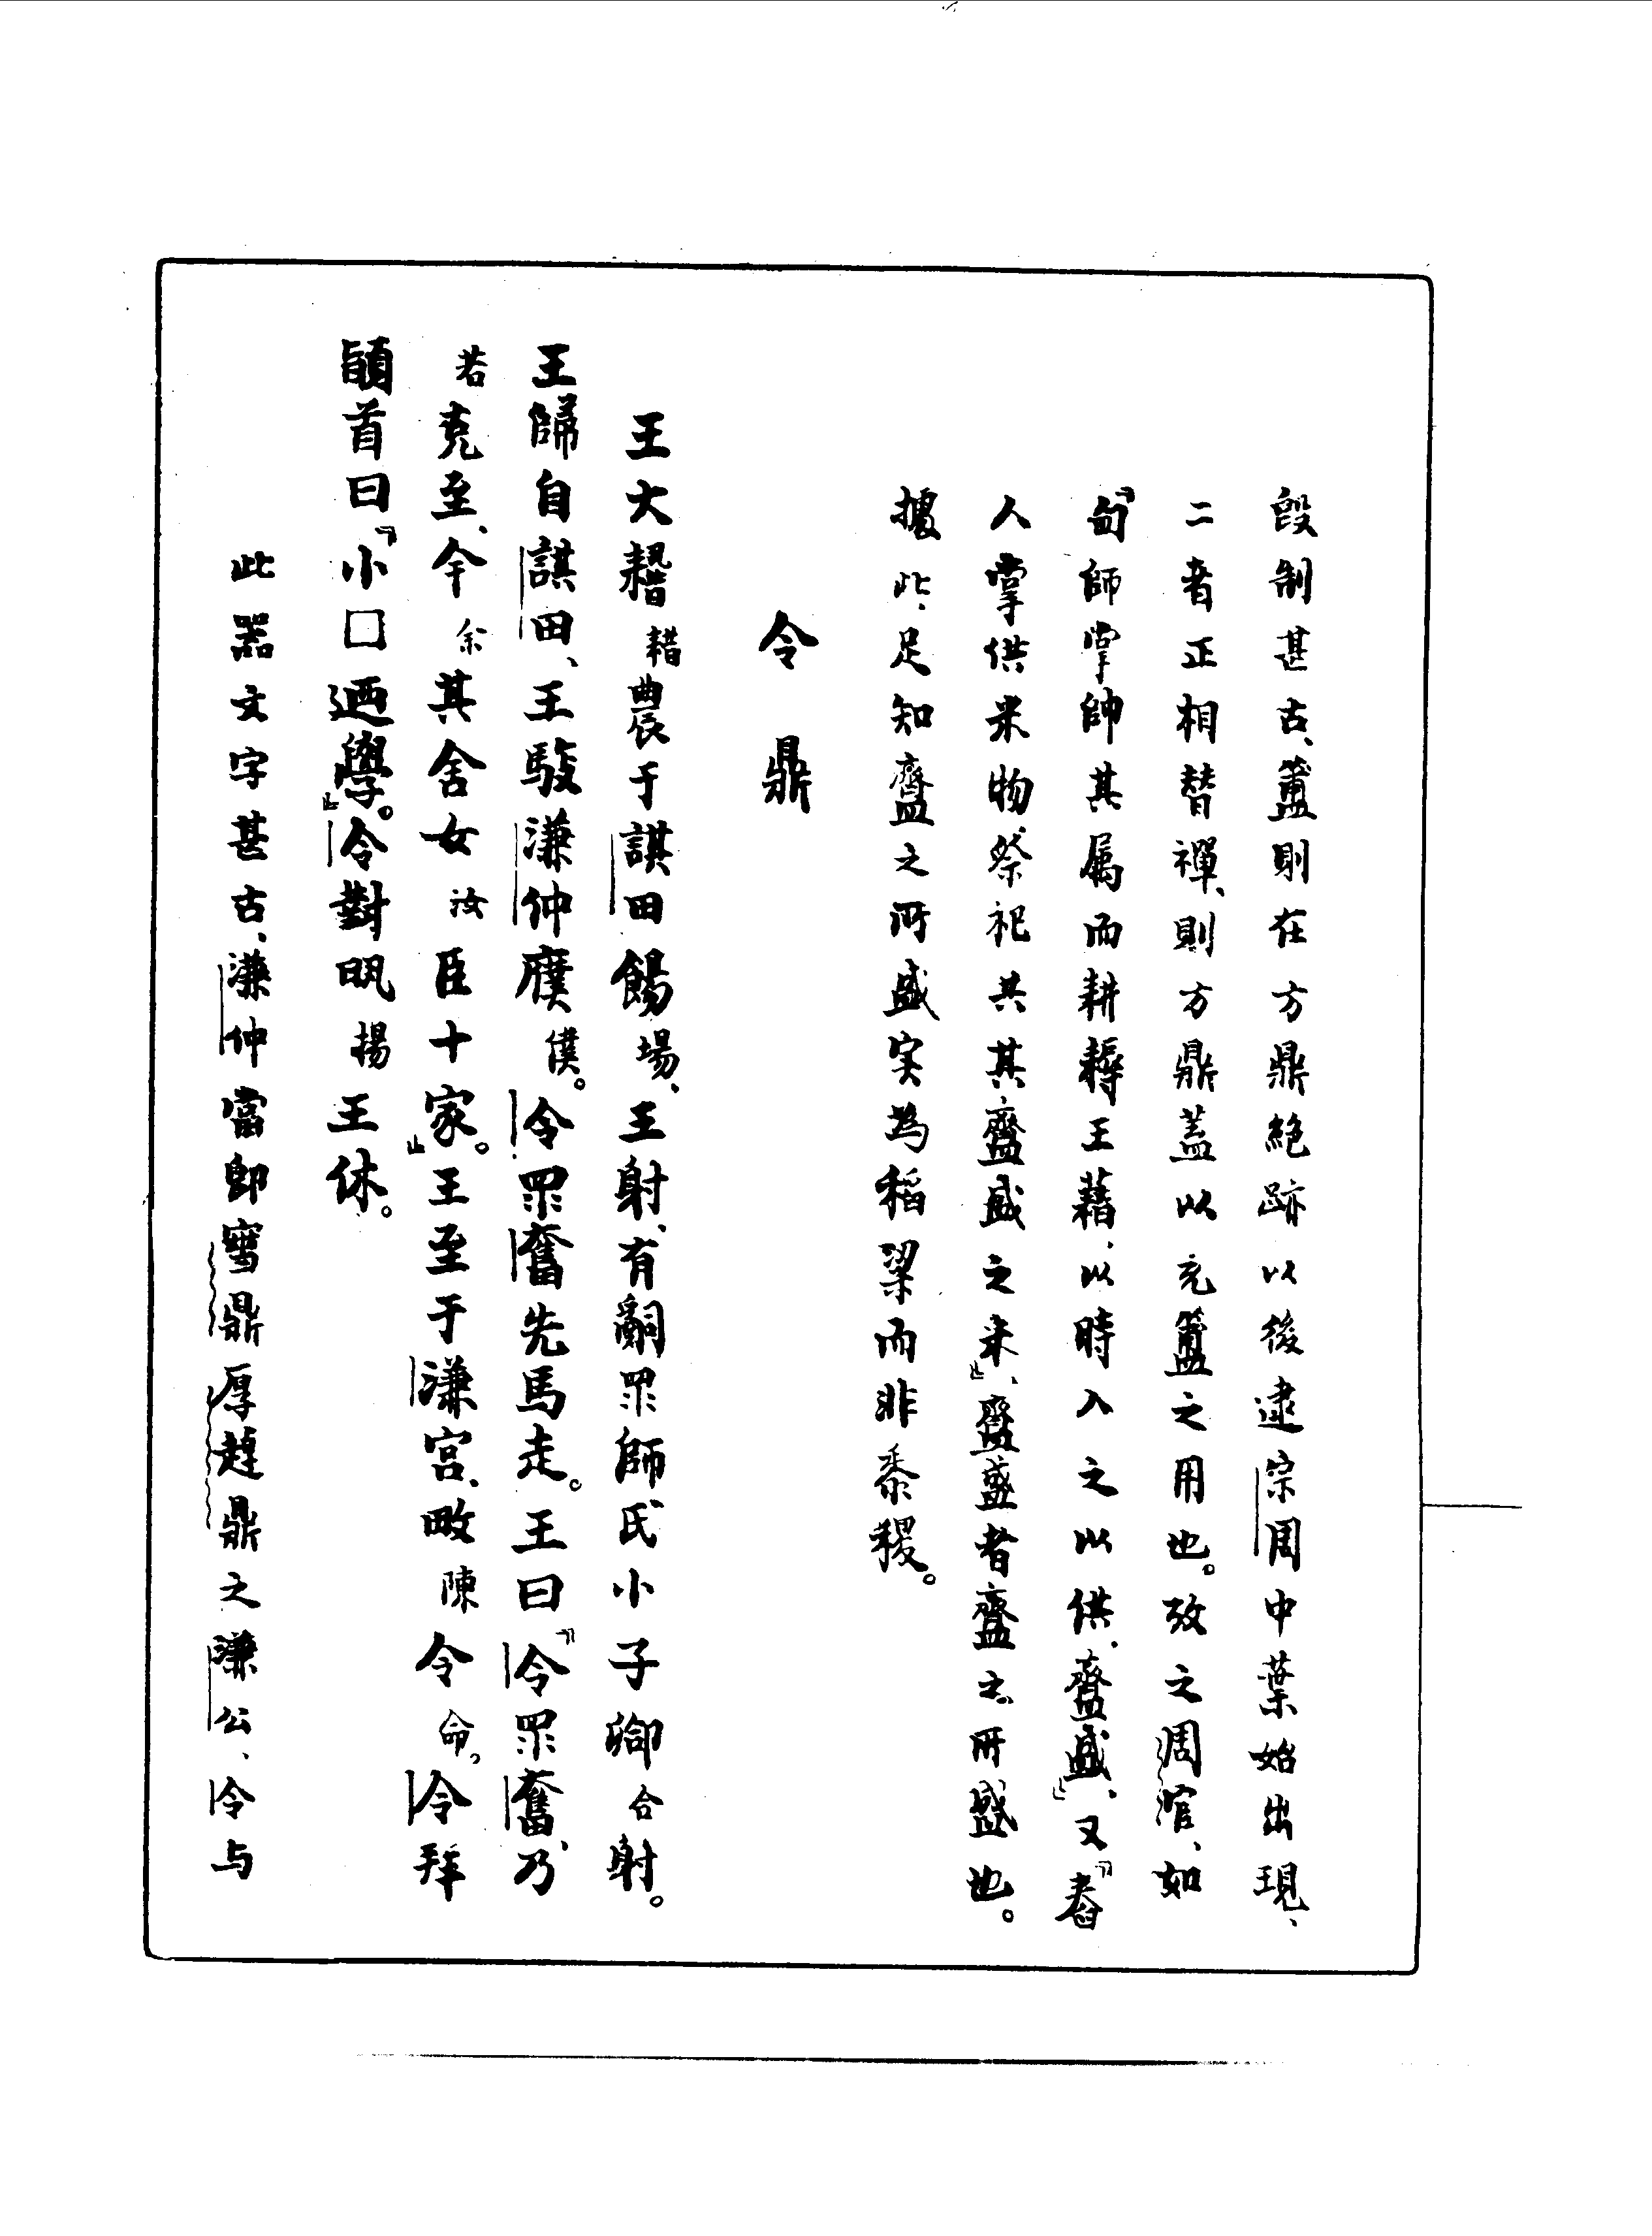 殷制甚古、簠則在方鼎絕跡以後逮宗周中葉始出現、
二者正相替禪、則方鼎蓋以充簠之用也。攷之周官、如
「甸師掌帥其属而耕耨王藉、以時入之以供、齍盛」、又「舂
人掌供米物、祭祀共其齍盛之米」、齍盛者齍之所盛也。
據此、足知齍之所盛实為稻粱而非黍稷。
令鼎
王大耤耤農于諆田餳場、王射、有嗣眔師氏小子卿合射。
王歸自諆田、王駿溓仲僕。令眔奮先馬走。王曰「令眔奮、乃
若克至、余其舍女汝臣十家」。王至于溓宮、敶陳令命。令拜
䭫首曰「小□迺學」。令對揚王休。
此器文字甚古、溓仲當即䨣鼎厚趠鼎之溓公、令与